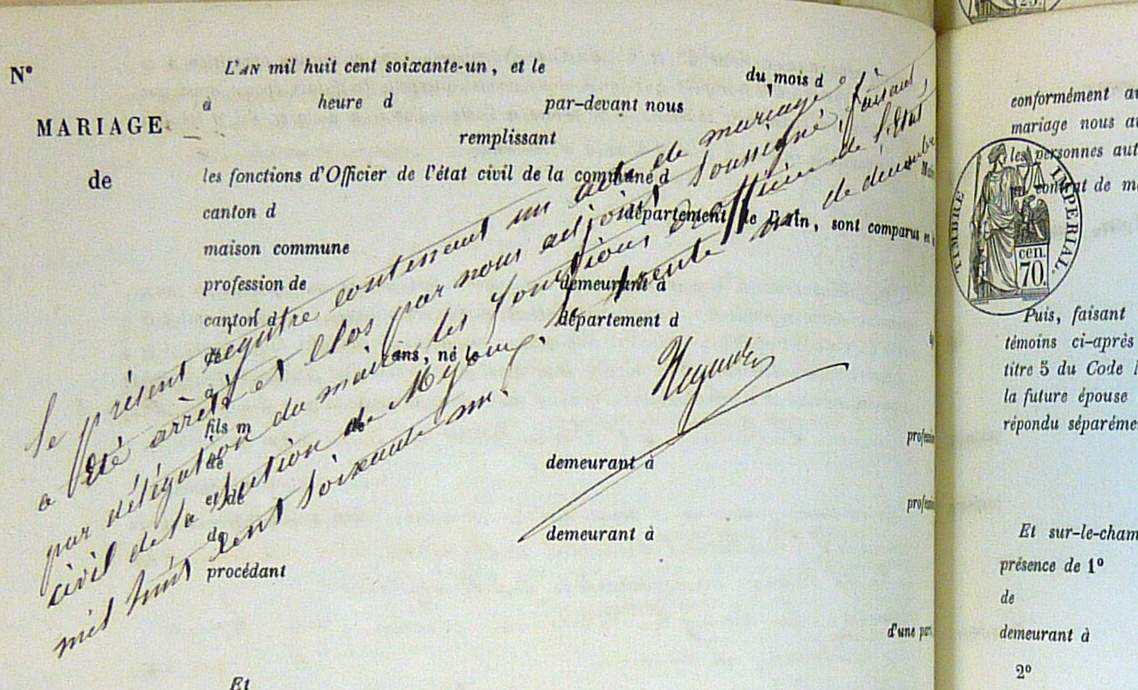 N°
MARIAGE
de
L'AN mil huit cent soixante-un, et le du mois d
à heure d par-devant nous
remplissant
les fonctions d'Officier de l'état civil de la commune d
canton d département de l'Ain, sont comparus
maison commune
profession de demeurant à
canton d département d
de
ans, né le
à
fils m de
de profession
et de demeurant à
de profession
procédant demeurant à
d'une part
Et
Le présent registre contenant un acte de mariage
a été arrêté et clos par nous adjoint soussigné, faisant,
par délégation du maire, les fonctions d'officier de l'état
civil de la section de trente un de décembre
mil huit cent soixante un.
TIMBRE IMPERIAL
cen.
70.
conformément
mariage nous
les personnes
contrat de
Puis, faisant
témoins ci-après
titre 5 du Code
la future épouse
répondu
Et sur-le-cham
présence de 1°
de
demeurant à
2°